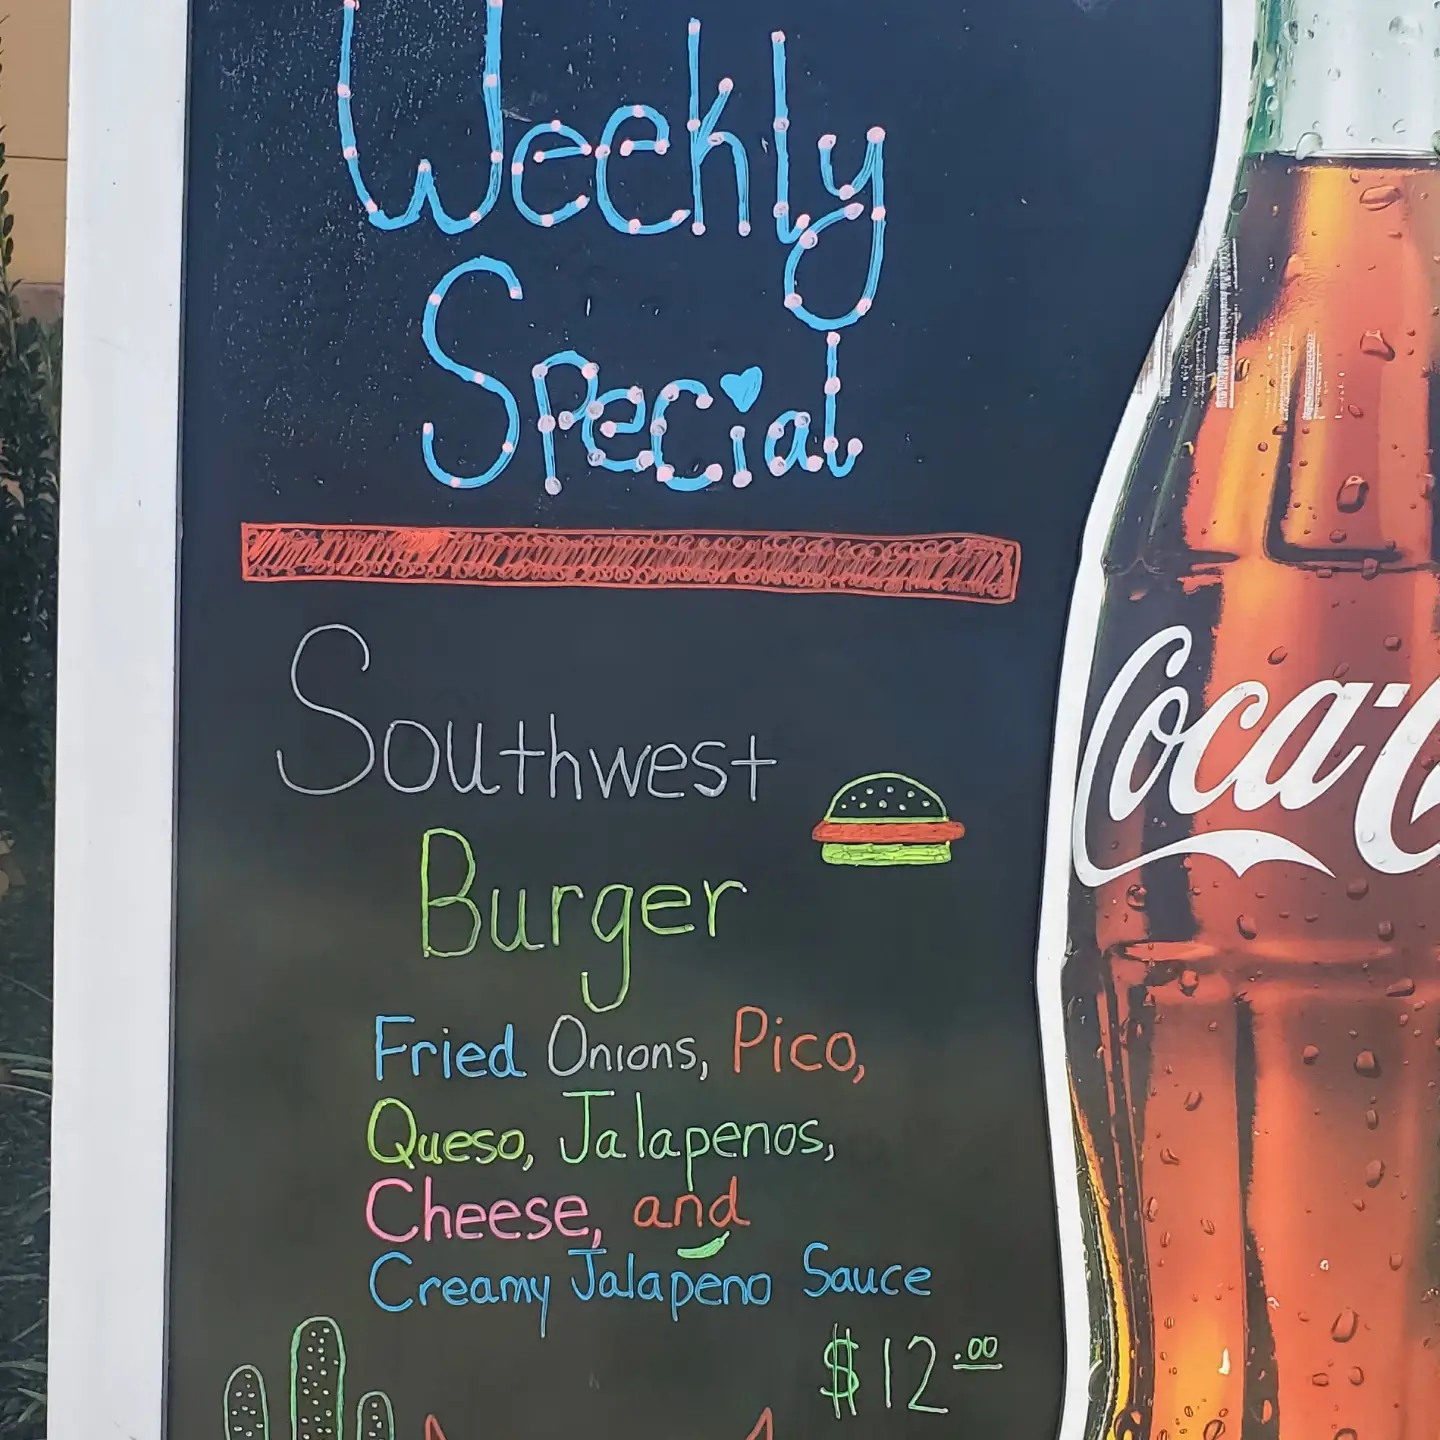 Weekly
Special
Southwest
Burger
Fried Onions, Pico,
Queso, Jalapenos,
Cheese, and
Creamy Jalapeno Sauce
$12.00
Coca-C